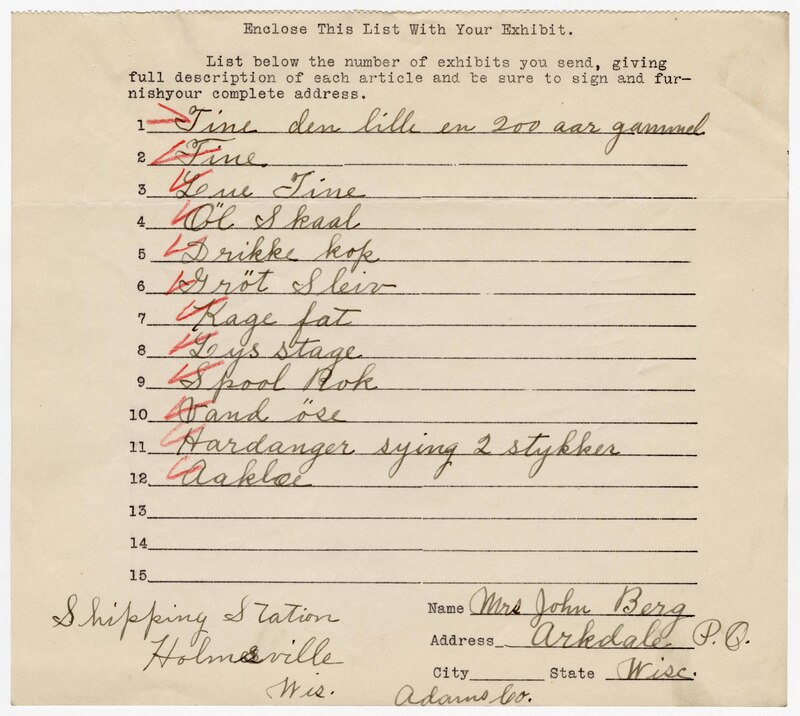 Enclose This List With Your Exhibit.
List below the number of exhibits you send, giving
full description of each article and be sure to sign and fur-
nishyour complete address.
1 Tine den lille en 200 aar gammel
2 Tine
3 Lue Tine
4 Öl Skaal
5 Drikke kop
6 Gröt Sleiv
7 Kage fat
8 Lys stage
9 Spool Rok
10 Vand öse
11 Hardanger sying 2 stykker
12 Aaklæ
13
14
15
Shipping Station
Holmesville
Wis.
Name Mrs John Berg
Address Arkdale P.O.
City State Wisc.
Adams Co.